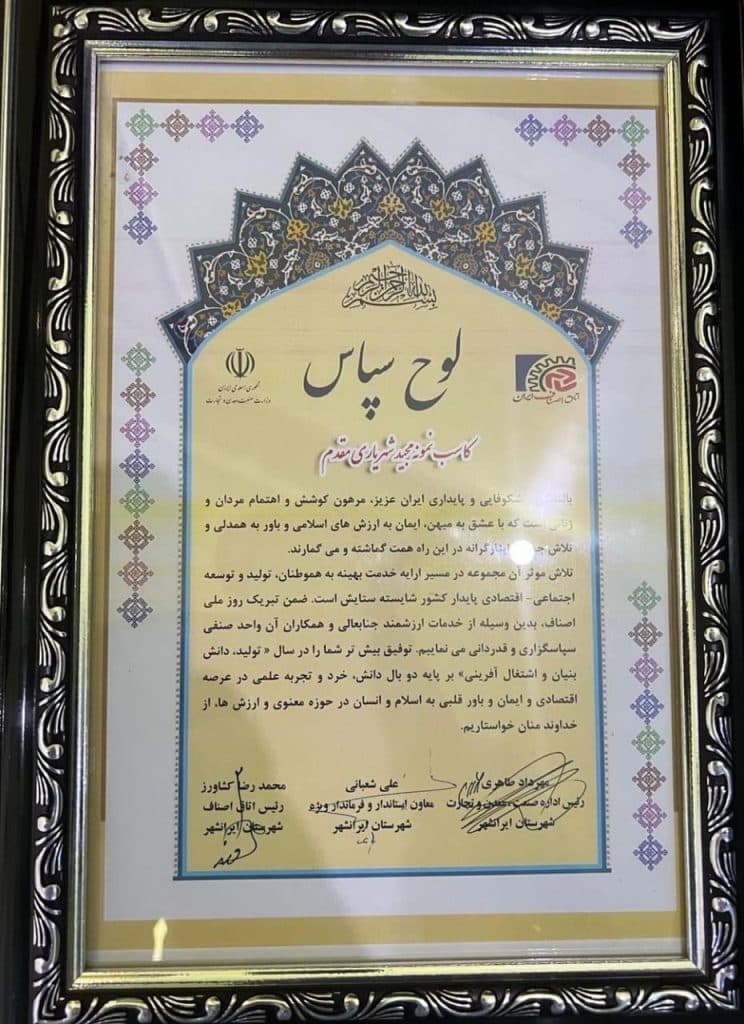 بسم الله الرحمن الرحیم
لوح سپاس
جمهوری اسلامی ایران
وزارت صنعت، معدن و تجارت
اتاق اصناف ایران
کاسب نمونه مجید شهریاری مقدم
شکوفایی و پایداری ایران عزیز، مرهون کوشش و اهتمام مردان و
است که با عشق به میهن، ایمان به ارزش های اسلامی و باور به همدلی و
تلاش ایثارگرانه در این راه همت گماشته و می گمارند.
تلاش موثر آن مجموعه در مسیر ارایه خدمت بهینه به هموطنان، تولید و توسعه
اجتماعی- اقتصادی پایدار کشور شایسته ستایش است. ضمن تبریک روز ملی
اصناف، بدین وسیله از خدمات ارزشمند جنابعالی و همکاران آن واحد صنفی
سپاسگزاری و قدردانی می نماییم. توفیق بیش تر شما را در سال « تولید، دانش
بنیان و اشتغال آفرینی» بر پایه دو بال دانش، خرد و تجربه علمی در عرصه
اقتصادی و ایمان و باور قلبی به اسلام و انسان در حوزه معنوی و ارزش ها، از
خداوند منان خواستاریم.
مهرداد طاهری
رئیس اداره صنعت، معدن و تجارت
شهرستان ایرانشهر
علی شعبانی
معاون استاندار و فرماندار ویژه
شهرستان ایرانشهر
محمد رضا کشاورز
رئیس اتاق اصناف
شهرستان ایرانشهر